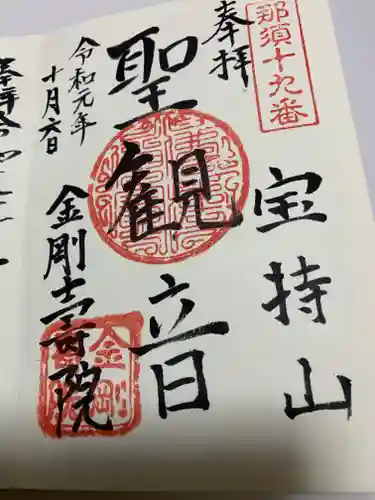 那須十九番
奉拝
宝持山
聖観音
令和元年
十月六日
金剛寿院